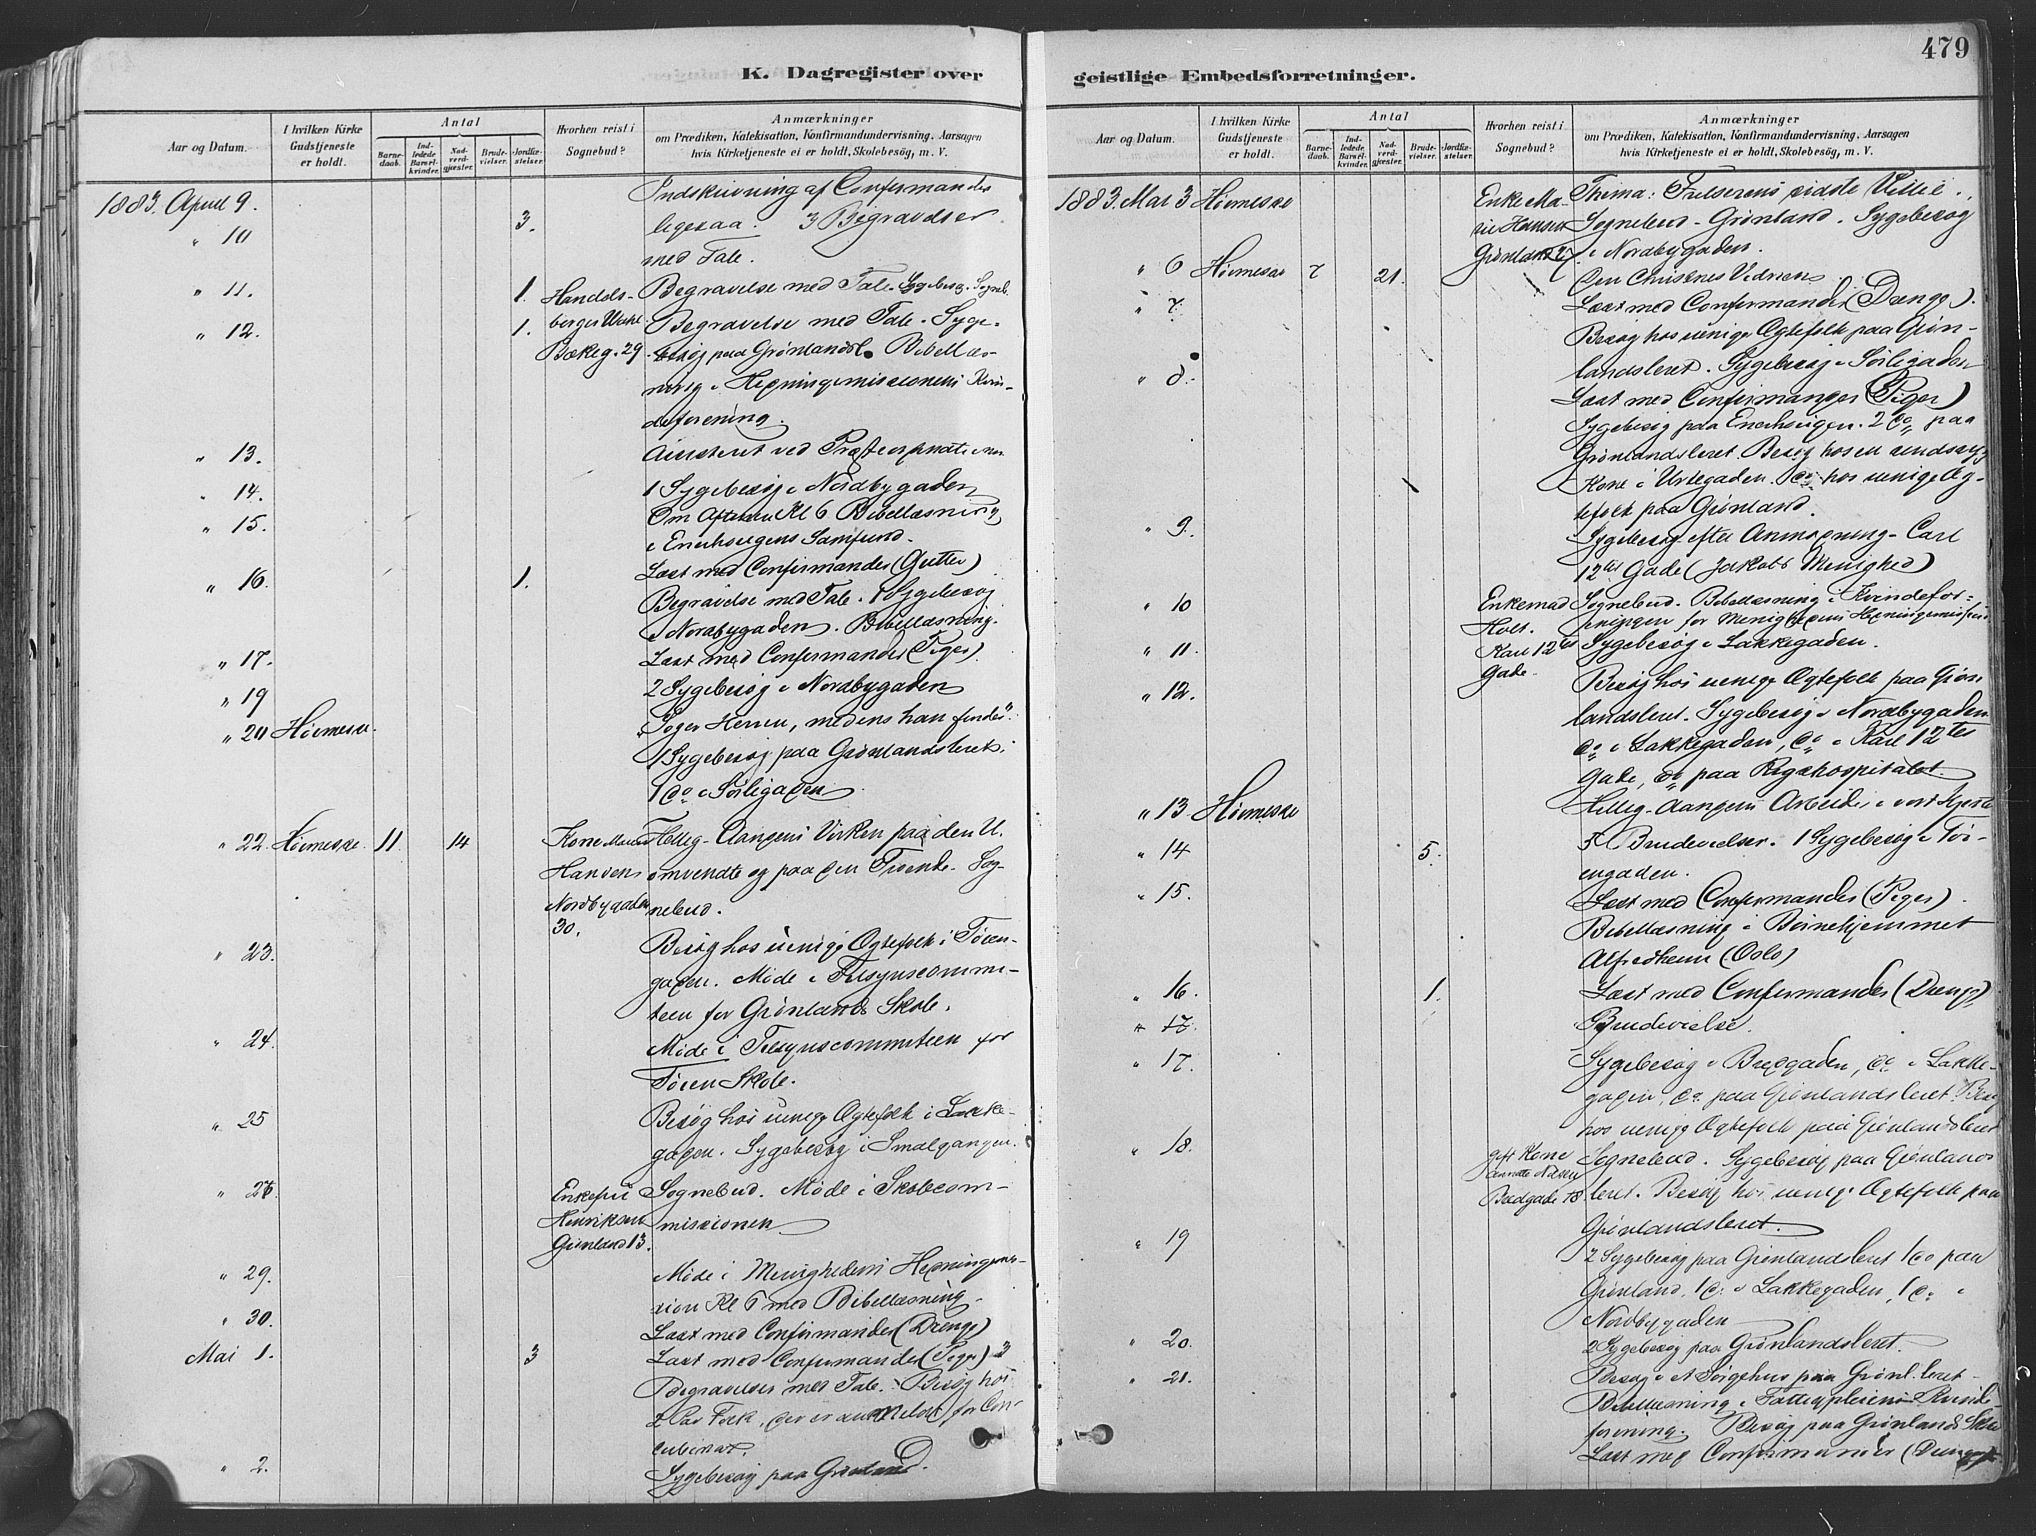 479
K. Dagregister over
Aar og Datum.
I hvilken Kirke Gudstjeneste er holdt.
Antal
Barnedaab.
Indledede Barselkvinder.
Nadverdgjæster.
Brudevielser.
Jordfæstelser.
Hvorhen reist i Sognebud?
Anmærkninger
om Prædiken, Katekisation, Konfirmandundervisning, Aarsagen
hvis Kirketjeneste ei er holdt, Skolebesøg, m. V.
1883. April 9. Indskrivning af Confirmander
" 10 3. ligesaa. 3 Begravelser
med Tale.
" 11. 1. Handels- Begravelse med Tale. Sygebesøg. Sogneb.
" 12. 1. Begravelse med Tale. Syge-
Bækkeg. 29. besøg paa Grønlandsl. Bibellæs-
ning i Hedningemissionens Kvin-
deforening.
" 13. Assisteret ved
" 14. 1 Sygebesøg i Nordbygaden
" 15. Om Aftenen Kl 6 Bibellæsning
i Enerhougens Samfund.
" 16. 1. Læst med Confirmander (Gutter)
Begravelse med Tale. 1 Sygebesøg
i Nordbygaden. Bibellæsning.
" 17. Læst med Confirmander (Piger).
" 19 2 Sygebesøg i Nordbygaden
" 20 Hovmesse. "Søger Herren, medens han findes".
1 Sygebesøg paa Grønlandsleret.
1 do i Sørligaden
" 22. Hovmesse. 11 14 Kone Helleg-Aangens Virken paa den U.
Hansen omvendte og paa den Troende. Sog-
Nordbygaden nebud.
30.
" 23. Besøg hos uenige Ægtefolk i Tøien-
gaden. Møde i Tilsynscommi-
teen for Grønlands Skole.
" 24. Møde i Tilsynscommiteen for
Tøien Skole.
" 25 Besøg hos uenige Ægtefolk i Lakke-
gaden. Sygebesøg i Smalgangen.
" 26 Enkefru Sognebud. Møde i Skolecom-
Henriksen missionen
Grønland 13.
" 29. Møde i Menighedens Hedningemis-
sion Kl 6 med Bibellæsning.
" 30. Læst med Confirmander (Drenge)
Mai 1. 3 Læst med Confirmander (Piger) 3
Begravelser med Tale. Besøg hos
2 Par Folk, der er anmeldt for Con-
cubinat.
" 2. Sygebesøg paa Grønland.
geistlige Embedsforretninger.
Aar og Datum.
I hvilken Kirke Gudstjeneste er holdt.
Antal
Barnedaab.
Indledede Barselkvinder.
Nadverdgjæster.
Brudevielser.
Jordfæstelser.
Hvorhen reist i Sognebud?
Anmærkninger
om Prædiken, Katekisation, Konfirmandundervisning, Aarsagen
hvis Kirketjeneste ei er holdt, Skolebesøg, m. V.
1883. Mai 3 Hovmesse Enke Ma- Thema: Frelserens sidste Villie.
rie Hansen Sognebud - Grønland. Sygebesøg
Grønland 27 i Nordbygaden.
" 6 Hovmesse 7 21. Den Christnes Vidnen
" 7. Læst med Confirmander (Drenge).
Besøg hos uenige Ægtefolk paa Grøn-
landsleret. Sygebesøg i Sørligaden
" 8. Læst med Confirmander (Piger)
Sygebesøg paa Enerhougen. 2 do paa
Grønlandsleret. Besøg hos en sindssyg
Kone i Urtegaden. do hos uenige Æg-
tefolk paa Grønland.
" 9. Sygebesøg efter Anmodning - Carl
12tes Gade (Jakobs Menighed)
" 10 Enkemad Sognebud. Bibellæsning i Kvindefor-
Holt. eningen for Menighedens Hedningemission
" 11. Karl 12tes Sygebesøg i Lakkegaden.
Gade.
" 12. Besøg hos uenige Ægtefolk paa Grøn-
landsleret. Sygebesøg i Nordbygaden
do i Lakkegaden, do i Karl 12tes
Gade, do paa Rigshospitalet.
" 13 Hovmesse Hellig-Aangens Arbeide i vort Hjerte
" 14 5. 5 Brudevielser. 1 Sygebesøg i Tøi-
engaden.
" 15. Læst med Confirmander (Piger).
Bibellæsning i Børnehjemmet
Alfredheim (Oslo)
" 16. 1. Læst med Confirmander (Drenge)
" 17. Brudevielse.
" 17. Sygebesøg i Bredgaden, do i Lakke-
gaden, do paa Grønlandsleret. Besøg
hos uenige Ægtefolk paa Grønlandsleret
" 18. gift Kone Sognebud. Sygebesøg paa Grønlands
leret. Besøg hos uenige Ægtefolk paa
Bredgade 18 Grønlandsleret.
" 19 2 Sygebesøg paa Grønlandsleret 1 do paa
Grønland, 1 do i Lakkegaden, 1 do i
Nordbygaden
" 20. 2 Sygebesøg paa Grønlandsleret.
" 21. Besøg i et Sørgehus paa Grønl. leret
Bibellæsning i Fattigpleiens Kvinde
forening. Besøg paa Grønlands Skole
Læst med Confirmander (Drenge)